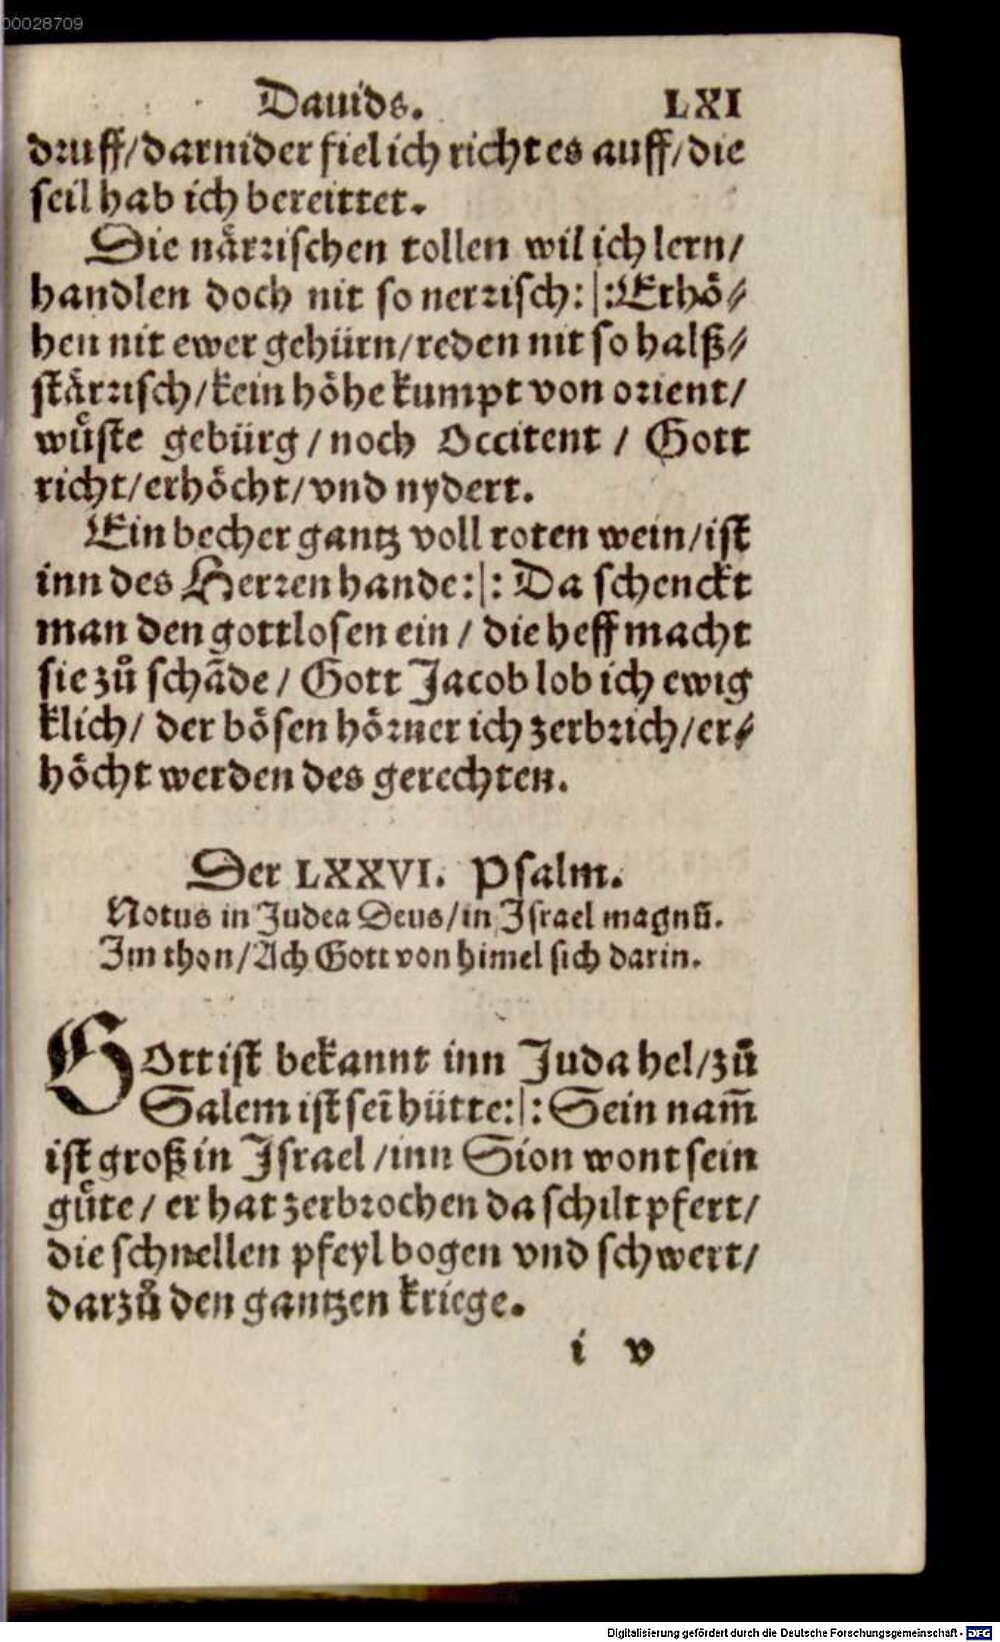 00028709
Dauids. LXI
druff/darnider fiel ich richt es auff/die
seil hab ich bereittet.
Die närrischen tollen wil ich lern/
handlen doch nit so nerrisch:|:Erhö⸗
hen nit ewer gehürn/reden nit so halß⸗
stärrisch/kein höhe kumpt von orient/
wuͤste gebürg/noch Occitent/Gott
richt/erhöcht/vnd nydert.
Ein becher gantz voll roten wein/ist
inn des Herren hande:|: Da schenckt
man den gottlosen ein/die heff macht
sie zuͦ schāde/Gott Jacob lob ich ewig
klich/der bösen hörner ich zerbrich/er⸗
höcht werden des gerechten.
Der LXXVI. Psalm.
Notus in Judea Deus/in Israel magnū.
Im thon/Ach Gott von himel sich darin.
GOtt ist bekannt inn Juda hel/zuͦ
Salem ist sein̄ hütte:|:Sein nam̄
ist groß in Israel/inn Sion wont sein
guͤte/er hat zerbrochen da schilt pfert/
die schnellen pfeyl bogen vnd schwert/
darzuͦ den gantzen kriege.
i v
Digitalisierung gefördert durch die Deutsche Forschungsgemeinschaft - DFG